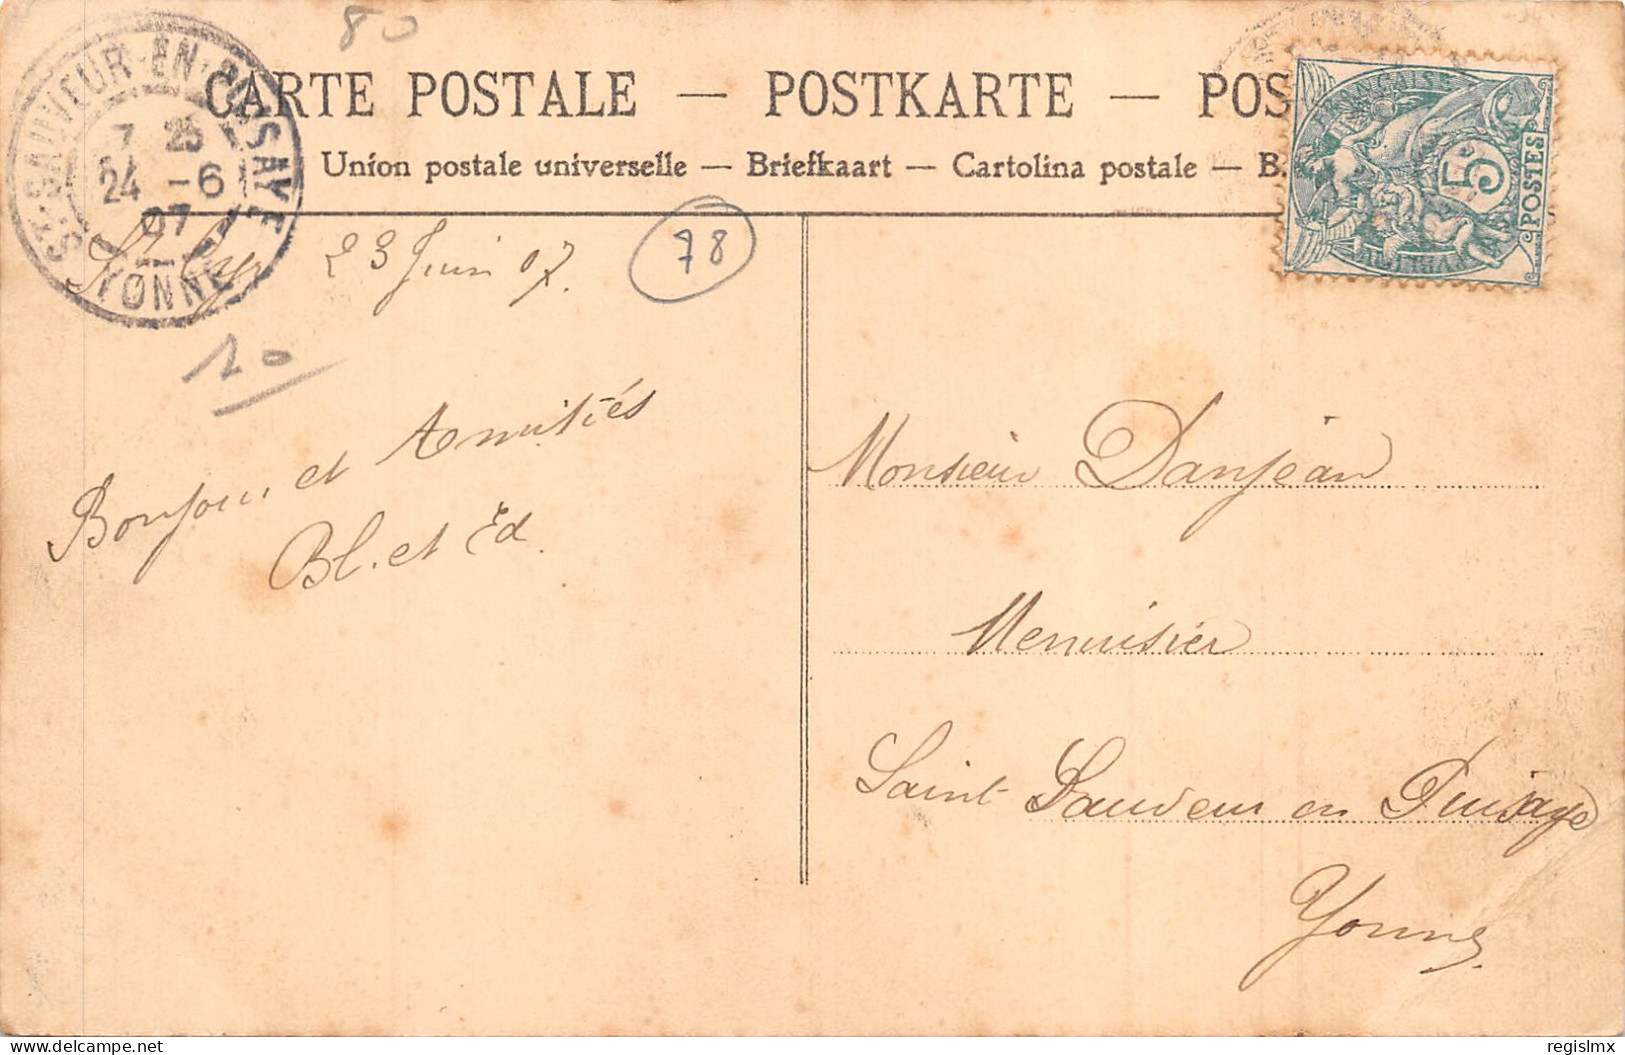 80
CARTE POSTALE — POSTKARTE — POS
Union postale universelle — Briefkaart — Cartolina postale — B.
ST-SAUVEUR-EN-PUISAYE
7 25
24 -6
07
YONNE
FRANÇAISE
5c
POSTES
St Cyr 23 Juin 07.
78
10
Bonjour et Amitiés
Bl. et Ed.
Monsieur Danjean
Menuisier
Saint Sauveur en Puisaye
Yonne
delcampe.net
regislmx